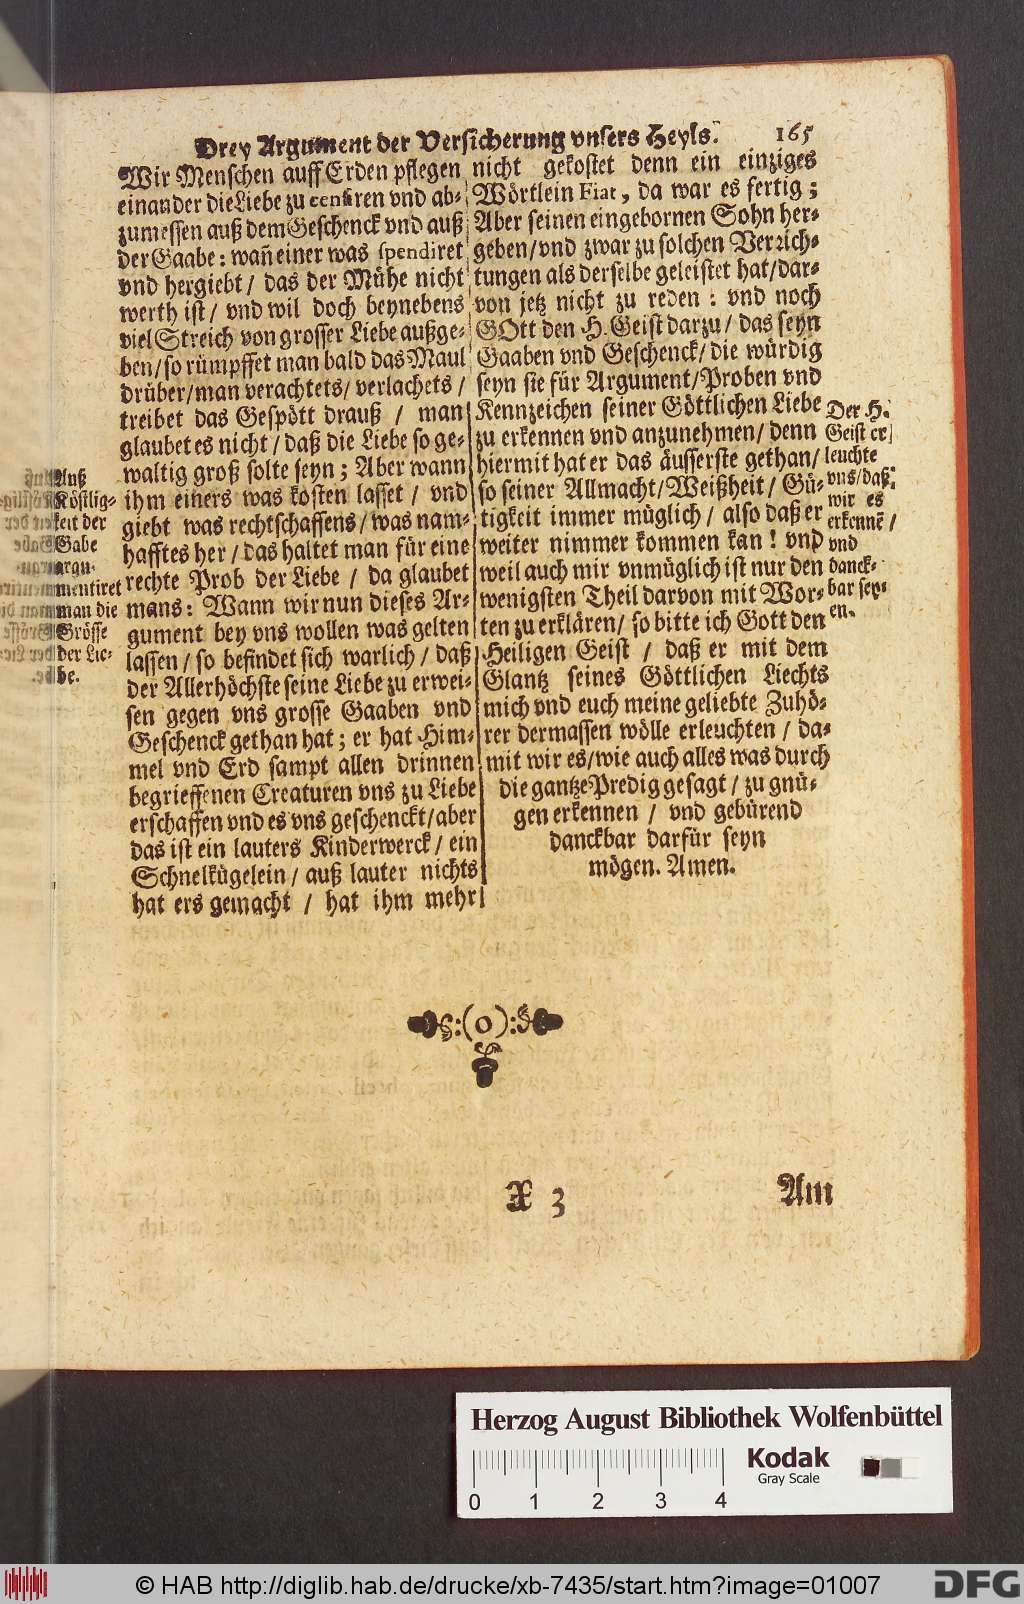 Drey Argument der Versicherung vnsers Heyls. 165
Wir Menschen auff Erden pflegen
einander die Liebe zu censiren vnd ab-
zumessen auß dem Geschenck vnd auß
der Gaabe: wañ einer was spendiret
vnd hergiebt / das der Mühe nicht
werth ist / vnd wil doch beynebens
viel Streich von grosser Liebe außge-
ben / so rümpffet man bald das Maul
drüber / man verachtets / verlachets /
treibet das Gespött drauß / man
glaubet es nicht / daß die Liebe so ge-
waltig groß solte seyn; Aber wann
ihm einers was kosten lasset / vnd
giebt was rechtschaffens / was nam-
hafftes her / das haltet man für eine
rechte Prob der Liebe / da glaubet
mans: Wann wir nun dieses Ar-
gument bey vns wollen was gelten
lassen / so befindet sich warlich / daß
der Allerhöchste seine Liebe zu erwei-
sen gegen vns grosse Gaaben vnd
Geschenck gethan hat; er hat Him-
mel vnd Erd sampt allen drinnen
begrieffenen Creaturen vns zu Liebe
erschaffen vnd es vns geschenckt / aber
das ist ein lauters Kinderwerck / ein
Schnelkügelein / auß lauter nichts
hat ers gemacht / hat ihm mehr
Auß
Köstlig-
keit der
Gabe
argu-
mentiret
man die
Grösse
der Lie-
be.
nicht gekostet denn ein einziges
Wörtlein Fiat, da war es fertig;
Aber seinen eingebornen Sohn her-
geben / vnd zwar zu solchen Verrich-
tungen als derselbe geleistet hat / dar-
von jetz nicht zu reden: vnd noch
GOtt den H. Geist darzu / das seyn
Gaaben vnd Geschenck / die würdig
seyn sie für Argument / Proben vnd
Kennzeichen seiner Göttlichen Liebe
zu erkennen vnd anzunehmen / denn
hiermit hat er das äusserste gethan /
so seiner Allmacht / Weißheit / Gü-
tigkeit immer müglich / also daß er
weiter nimmer kommen kan! vnd
weil auch mir vnmüglich ist nur den
wenigsten Theil darvon mit Wor-
ten zu erklären / so bitte ich Gott den
Heiligen Geist / daß er mit dem
Glantz seines Göttlichen Liechts
mich vnd euch meine geliebte Zuhö-
rer dermassen wölle erleuchten / da-
mit wir es / wie auch alles was durch
die gantze Predig gesagt / zu gnü-
gen erkennen / vnd gebürend
danckbar darfür seyn
mögen. Amen.
Der H.
Geist er
leuchte
vns / daß
wir es
erkennē /
vnd
danck-
bar sey-
en.
:(o):
X 3 Am
Herzog August Bibliothek Wolfenbüttel
Kodak
Gray Scale
0 1 2 3 4
© HAB http://diglib.hab.de/drucke/xb-7435/start.htm?image=01007
DFG